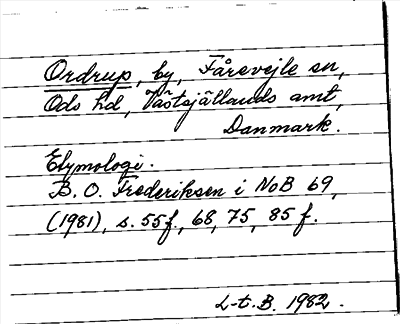 Ordrup, by, Fårevejle sn,
Ods hd, Västsjällands amt,
Danmark.
Etymologi.
B. O. Frederiksen i NoB 69,
(1981), s. 55f., 68, 75, 85 f.
L-t. B. 1982.